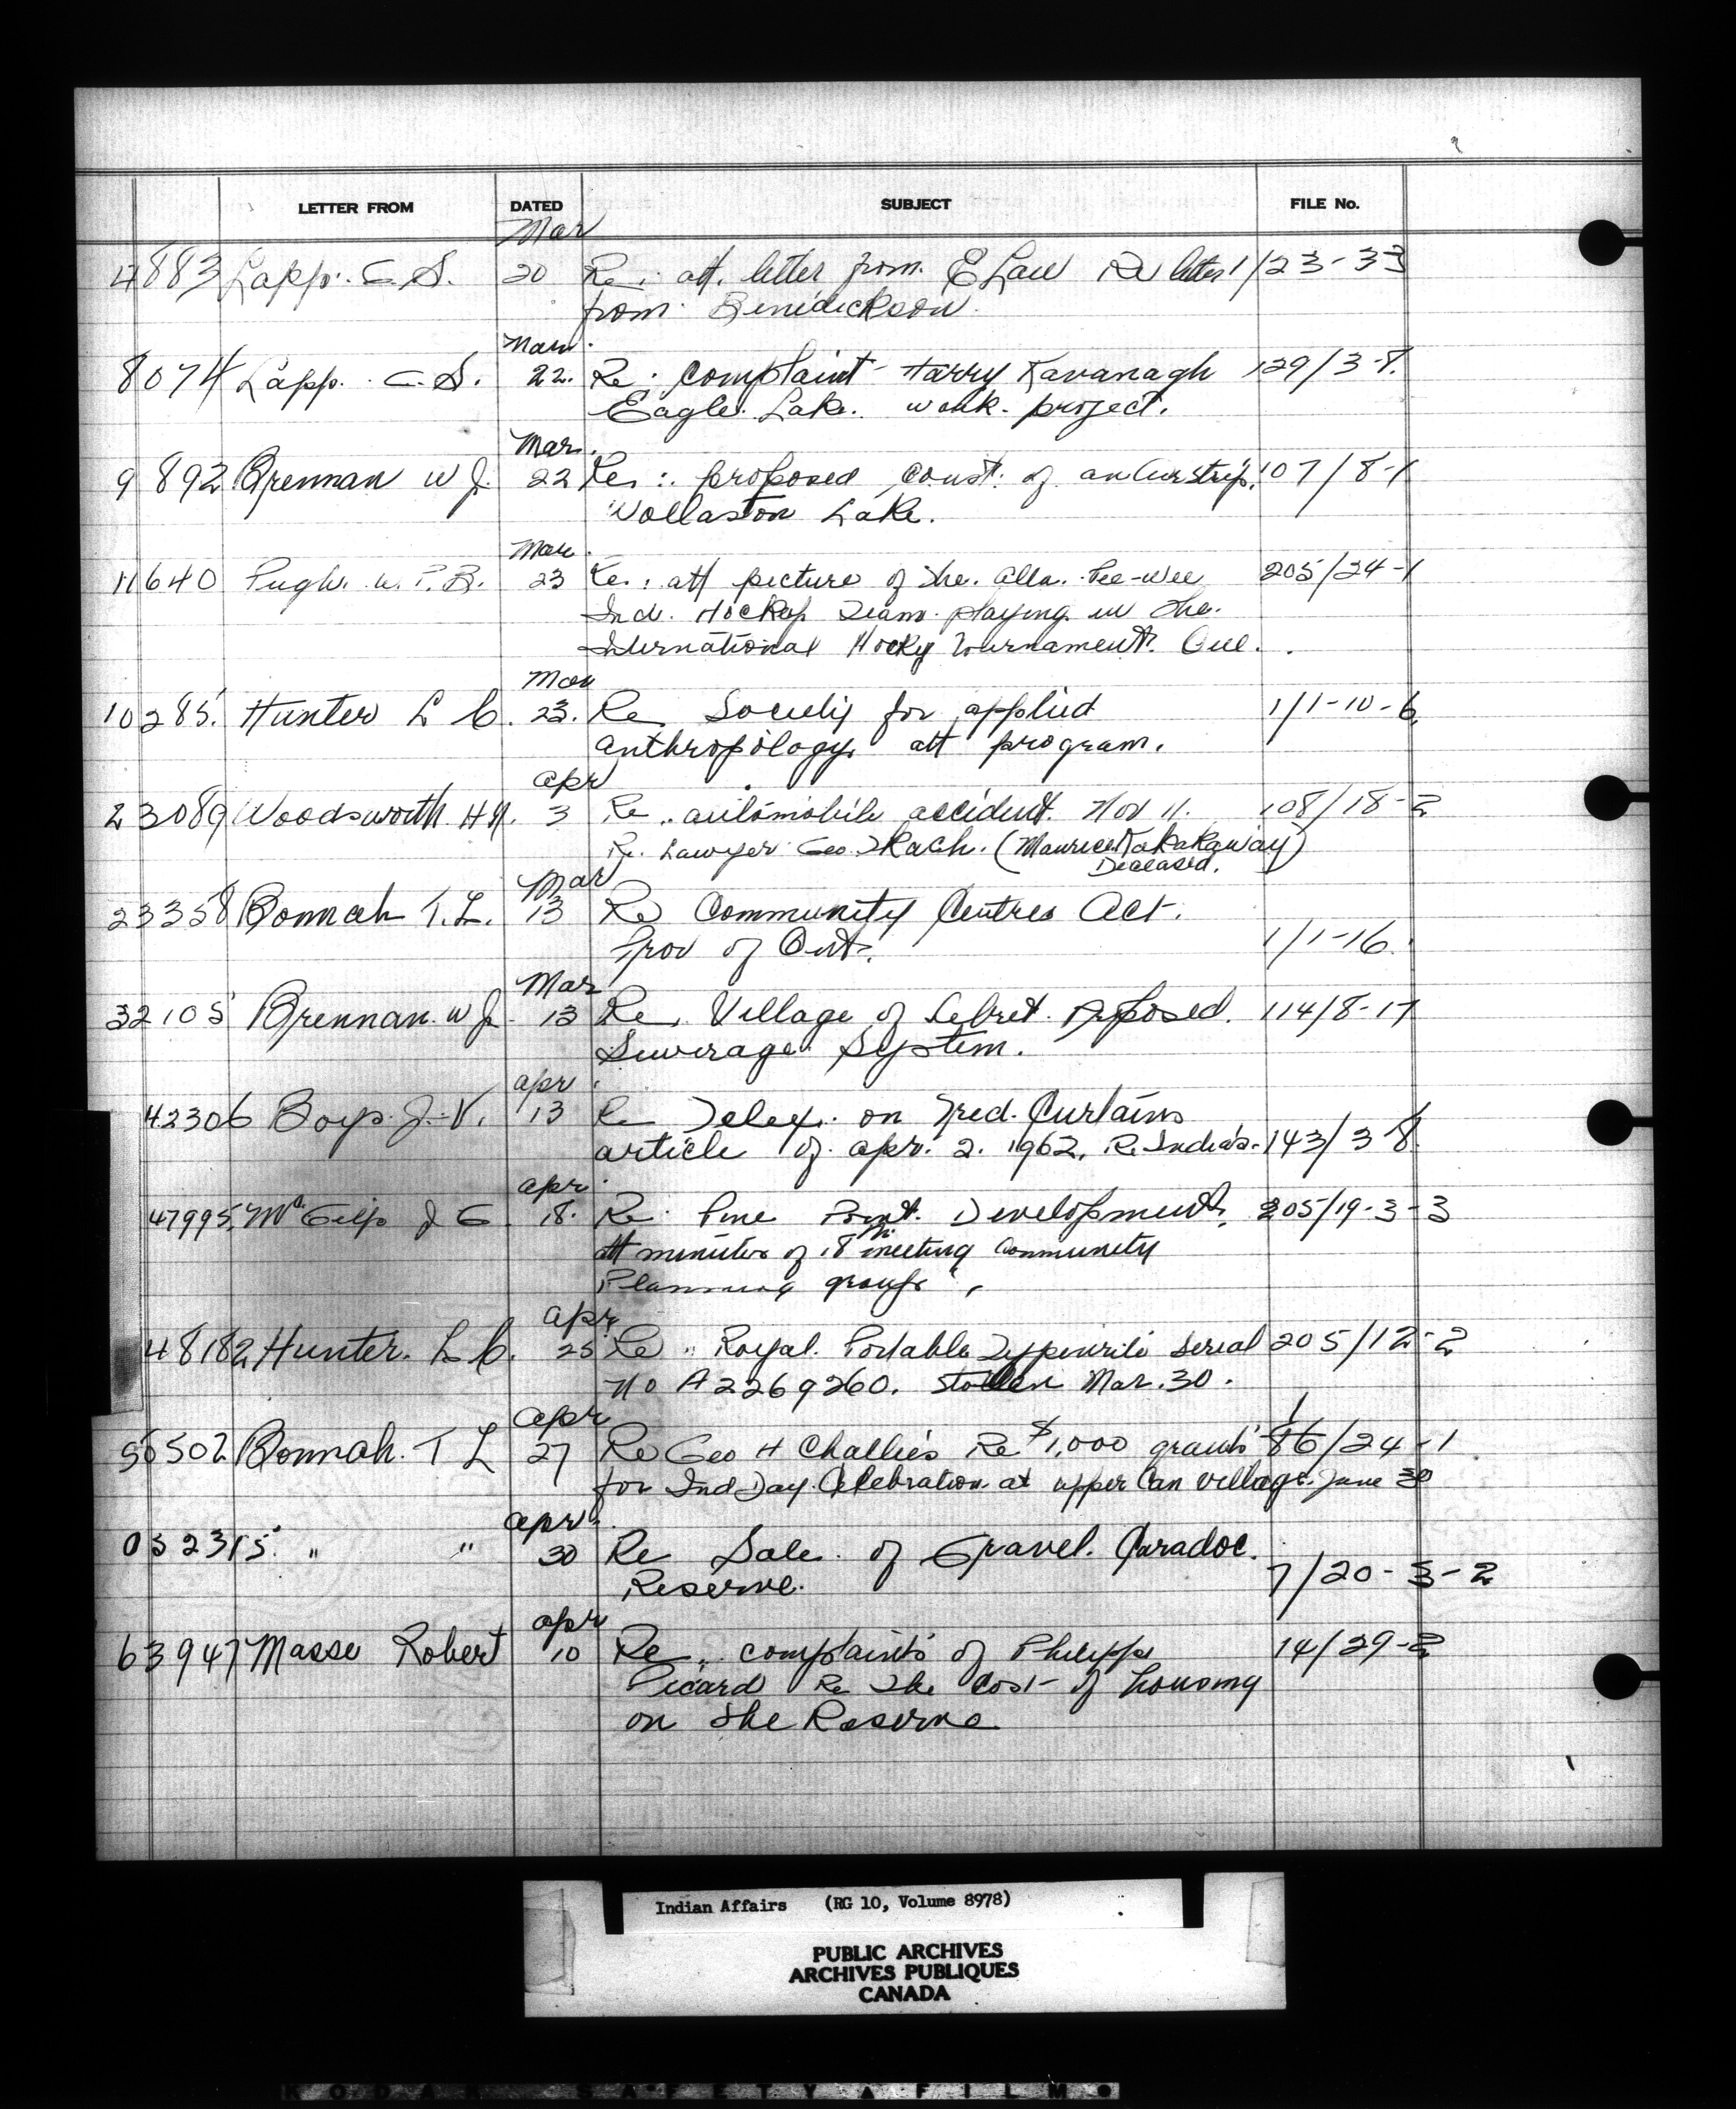 LETTER FROM DATED SUBJECT FILE No.
Mar
4883 Lapp. E. S. 20 Re: att. letter from E Law Re letter 1/23-33
from Benidickson
Mar.
8074 Lapp. E. S. 22. Re: complaint - Harry Kavanagh 129/3-8.
Eagle Lake. work project.
Mar.
9892 Brennan W J. 22 Re: proposed const. of an airstrip. 107/8-1
Wollaston Lake.
Mar.
11640 Pugh. W. P. B. 23 Re: att picture of the. Alta. Pee-Wee 205/24-1
Ind. Hockey Team playing in the.
International Hocky Tournament. Que.
Mar
10285. Hunter L C. 23. Re Society for applied 1/1-10-6
anthropology att program.
apr
23089 Woodsworth H N. 3 Re. automobile accident. Nov 11. 108/18-2
Re. Lawyer Geo. (Maurice
Deceased.
Mar
23358 Bonnah T.L. 13 Re Community Centres Act.
Prov of Ont. 1/1-16.
Mar
32105 Brennan. W J. 13 Re. Village of Lebret. Proposed. 114/8-17
Sewerage System.
apr
42306 Boys J. V. 13 Re Telex. on Fred. Curtains
article of apr. 2. 1962. Re India's. 143/3 8
apr.
47995. Mc Gilp J G 18. Re. Pine Point. Development. 205/19-3-3
att minutes of 18th meeting Community
Planning group
apr
48182 Hunter. L C. 25 Re. Royal. Portable Typewrite Serial 205/12-2
No A2269260. Stollen Mar. 30.
apr 1
50502 Bonnah. T L 27 Re Geo H Challies Re $1,000 grants 86/24-1
for Ind Day Celebration. at upper Can village. June 30
apr
052315. " " 30 Re Sale of Gravel. Caradoc.
Reserve. 7/20-3-2
apr
63947 Masse Robert 10 Re. complaints of Philippe 14/29-2
Picard Re the Cost of housing
on the Reserve
Indian Affairs (RG 10, Volume 8978)
PUBLIC ARCHIVES
ARCHIVES PUBLIQUES
CANADA
KODAK SAFETY ▲ FILM ●